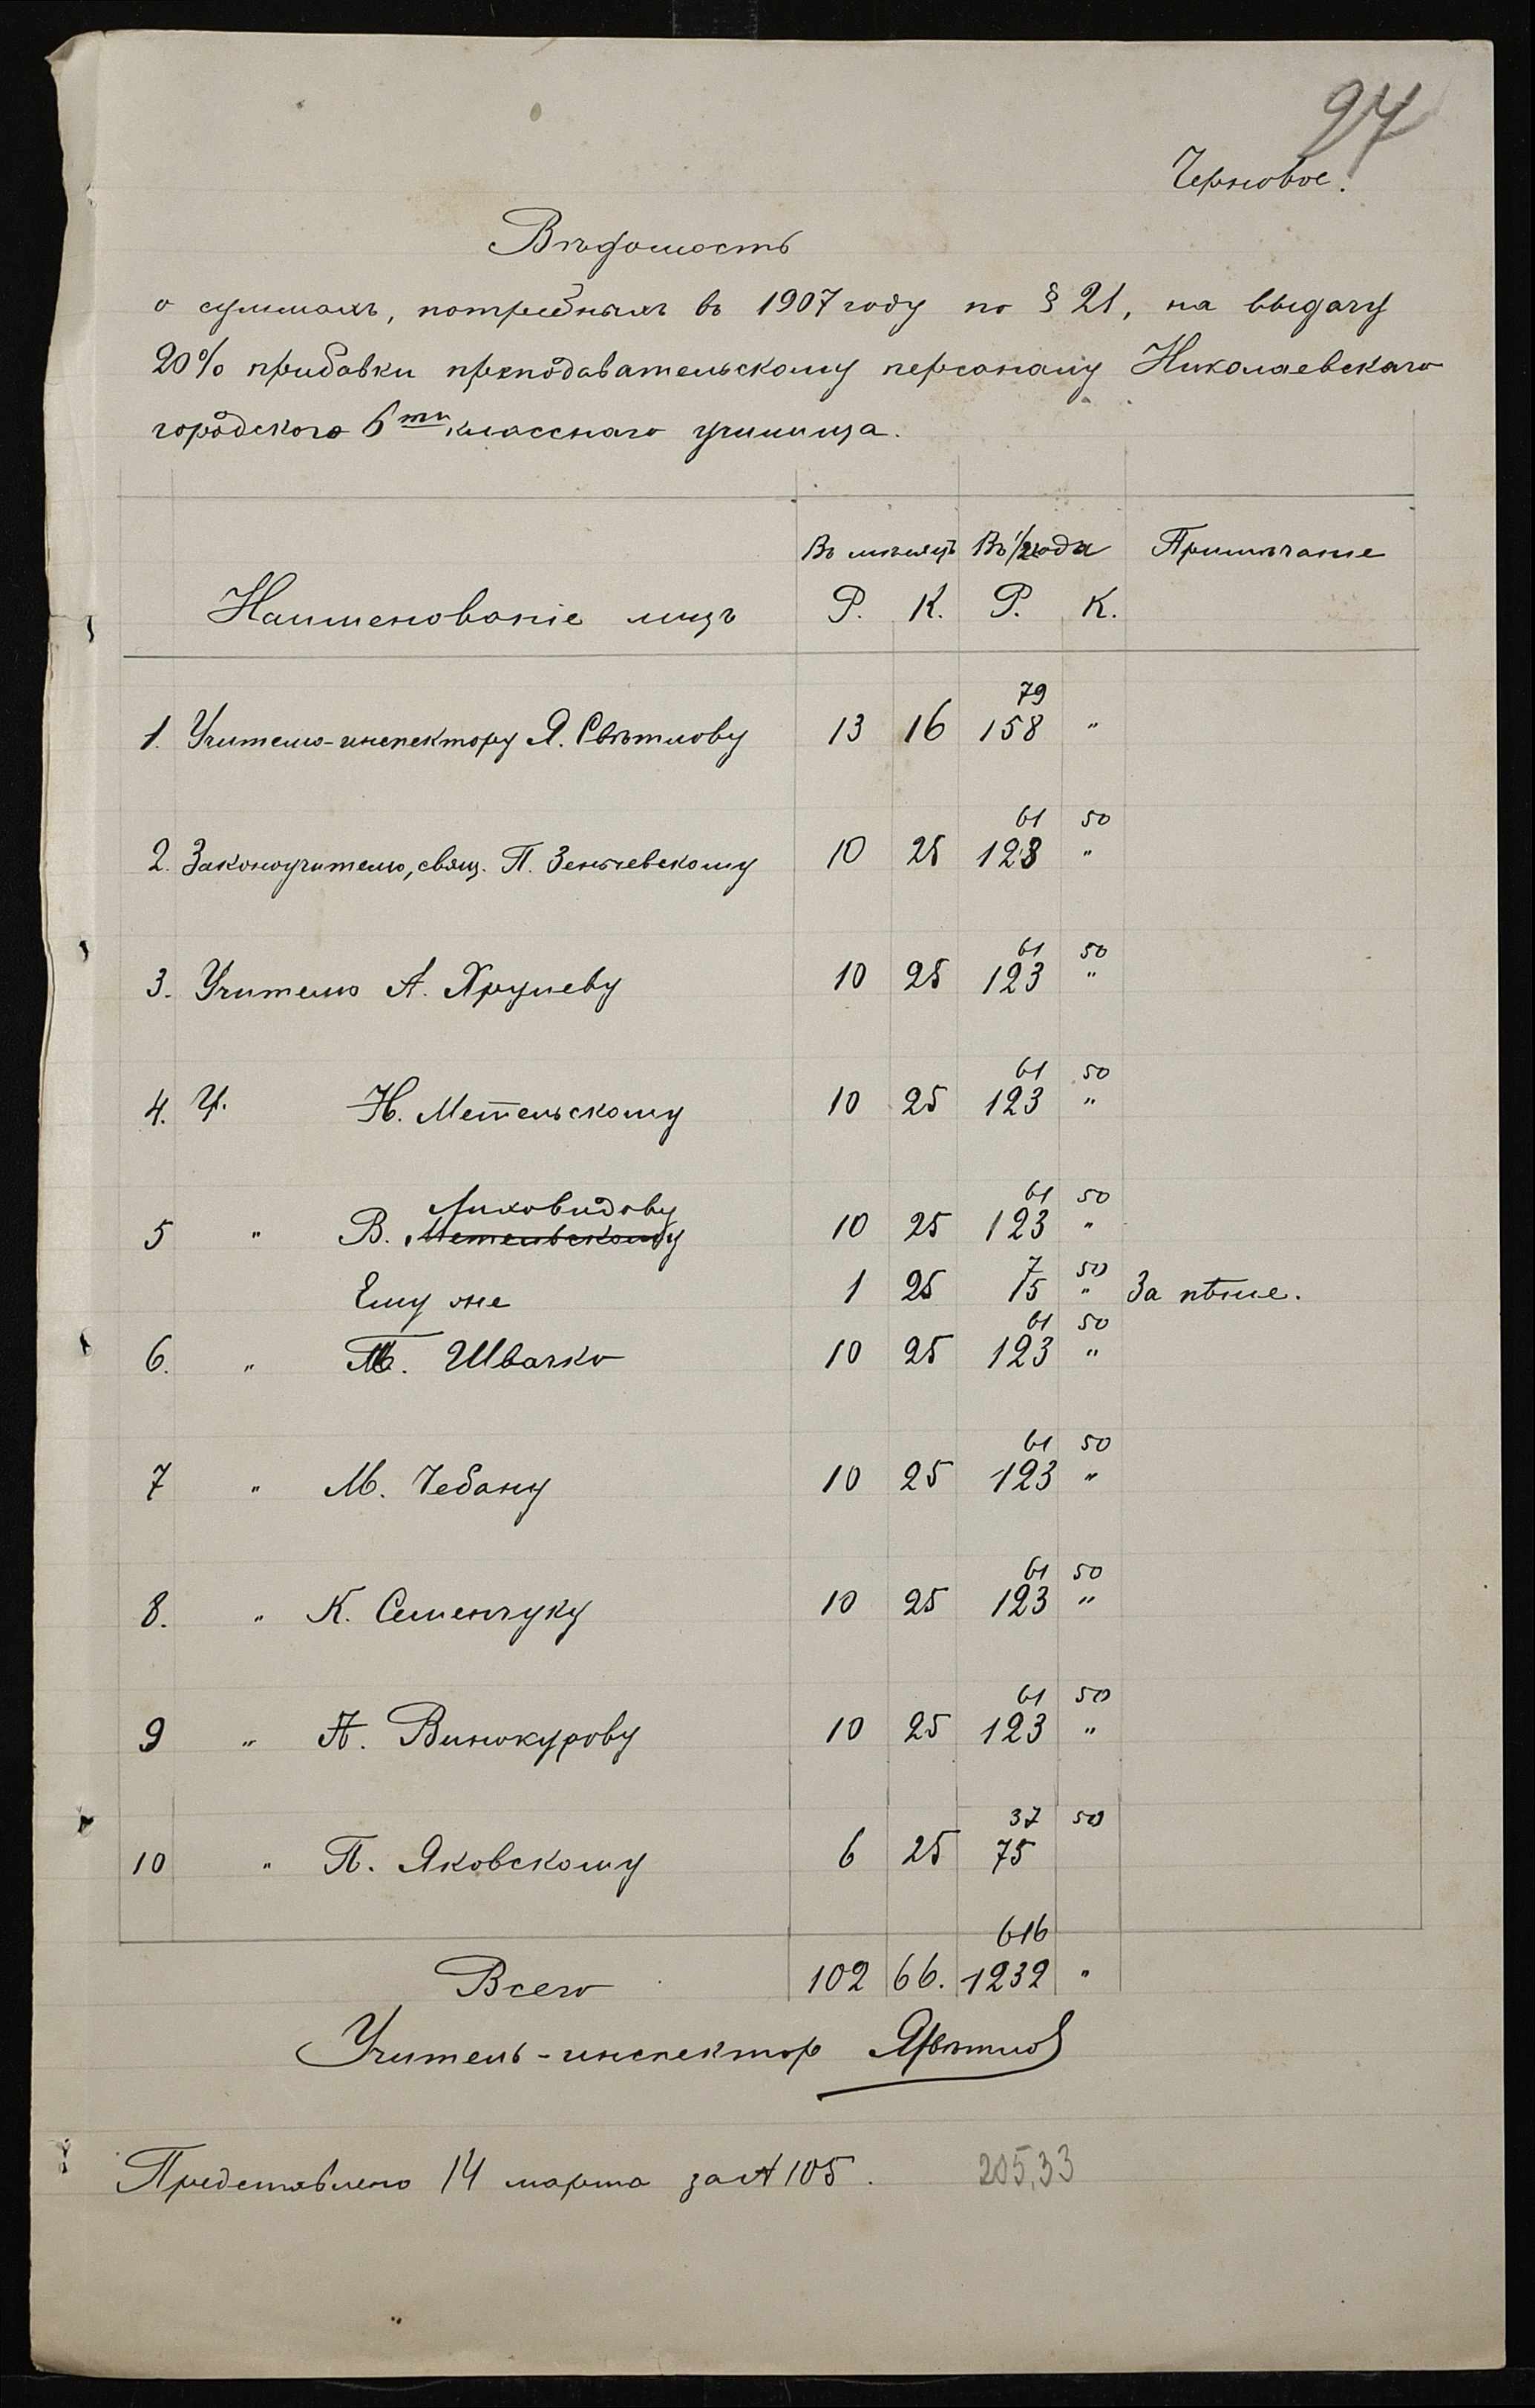 97
Черновое.
Вѣдомость
о суммахъ, потребныхъ въ 1907 году по § 21, на выдачу
20% прибавки преподавательскому персоналу Николаевскаго
городского 6ти класснаго училища.
Наименованіе лицъ Въ мѣсяцъ Въ 1/2 года Примѣчаніе
Р. К. Р. К.
79
1. Учителю-инспектору Я. Свѣтлову 13 16 158 "
61 50
2. Законоучителю, свящ. П. Зеньчевскому 10 25 123 "
61 50
3. Учителю А. Хрулеву 10 25 123 "
61 50
4. У. Н. Метельскому 10 25 123 "
Лиховидову 61 50
5 " В. Метельскому 10 25 123 "
7 50
Ему же 1 25 15 " За пѣніе.
61 50
6. " Швачко 10 25 123 "
61 50
7 " М. Чебану 10 25 123 "
61 50
8. " К. Семенчуку 10 25 123 "
61 50
9 " А. Винокурову 10 25 123 "
37 50
10 " П. Яковскому 6 25 75
616
Всего 102 66. 1232 "
Учитель-инспекторъ ЯСвѣтлов
Представлено 14 марта за № 105. 205,33